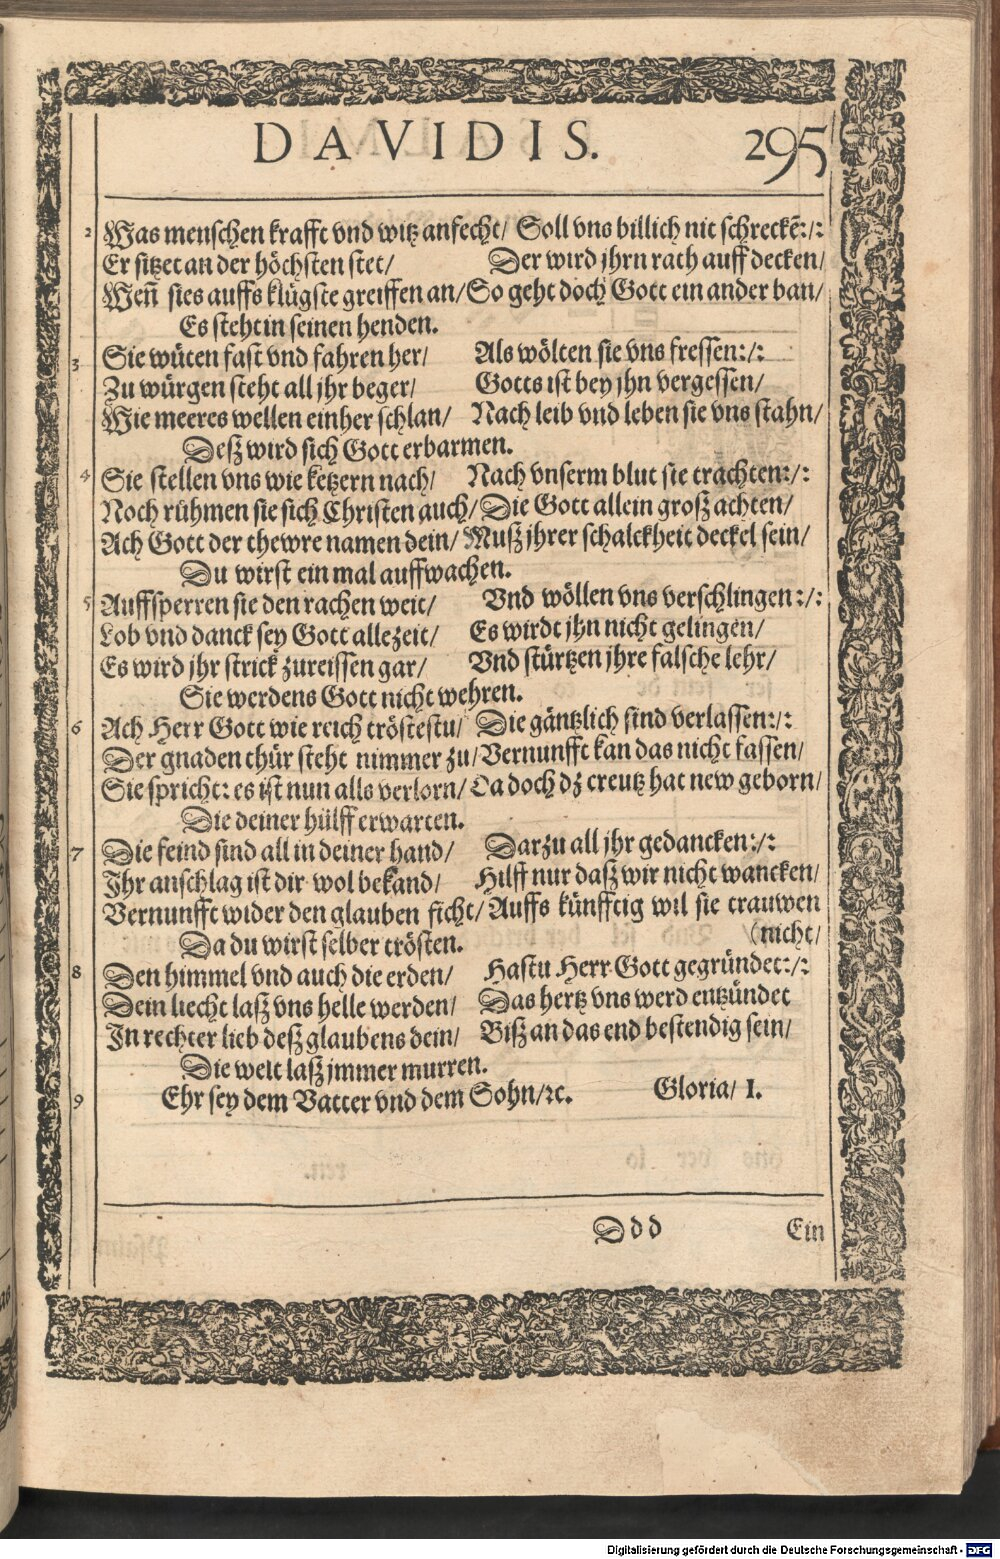 DAVIDIS. 295
2 Was menschen krafft vnd witz anfecht/ Soll vns billich nit schreckẽ:/:
Er sitzet an der höchsten stet/ Der wird jhrn rath auff decken/
Weñ sies auffs klügste greiffen an/ So geht doch Gott ein ander ban/
Es steht in seinen henden.
3 Sie wüten fast vnd fahren her/ Als wölten sie vns fressen:/:
Zu würgen steht all jhr beger/ Gotts ist bey jhn vergessen/
Wie meeres wellen einher schlan/ Nach leib vnd leben sie vns stahn/
Deß wird sich Gott erbarmen.
4 Sie stellen vns wie ketzern nach/ Nach vnserm blut sie trachten:/:
Noch rühmen sie sich Christen auch/ Die Gott allein groß achten/
Ach Gott der thewre namen dein/ Muß jhrer schalckheit deckel sein/
Du wirst ein mal auffwachen.
5 Auffsperren sie den rachen weit/ Vnd wöllen vns verschlingen:/:
Lob vnd danck sey Gott allezeit/ Es wirdt jhn nicht gelingen/
Es wird jhr strick zureissen gar/ Vnd stürtzen jhre falsche lehr/
Sie werdens Gott nicht wehren.
6 Ach Herr Gott wie reich tröstestu/ Die gäntzlich sind verlassen:/:
Der gnaden thür steht nimmer zu/ Vernunfft kan das nicht fassen/
Sie spricht: es ist nun alls verlorn/ Da doch dz creutz hat new geborn/
Die deiner hülff erwarten.
7 Die feind sind all in deiner hand/ Darzu all jhr gedancken:/:
Ihr anschlag ist dir wol bekand/ Hilff nur daß wir nicht wancken/
Vernunfft wider den glauben ficht/ Auffs künfftig wil sie trauwen
(nicht/
Da du wirst selber trösten.
8 Den himmel vnd auch die erden/ Hastu Herr Gott gegründet:/:
Dein liecht laß vns helle werden/ Das hertz vns werd entzündet
In rechter lieb deß glaubens dein/ Biß an das end bestendig sein/
Die welt laß jmmer murren.
9 Ehr sey dem Vatter vnd dem Sohn/ꝛc. Gloria/ 1.
Ddd Ein
Digitalisierung gefördert durch die Deutsche Forschungsgemeinschaft - DFG